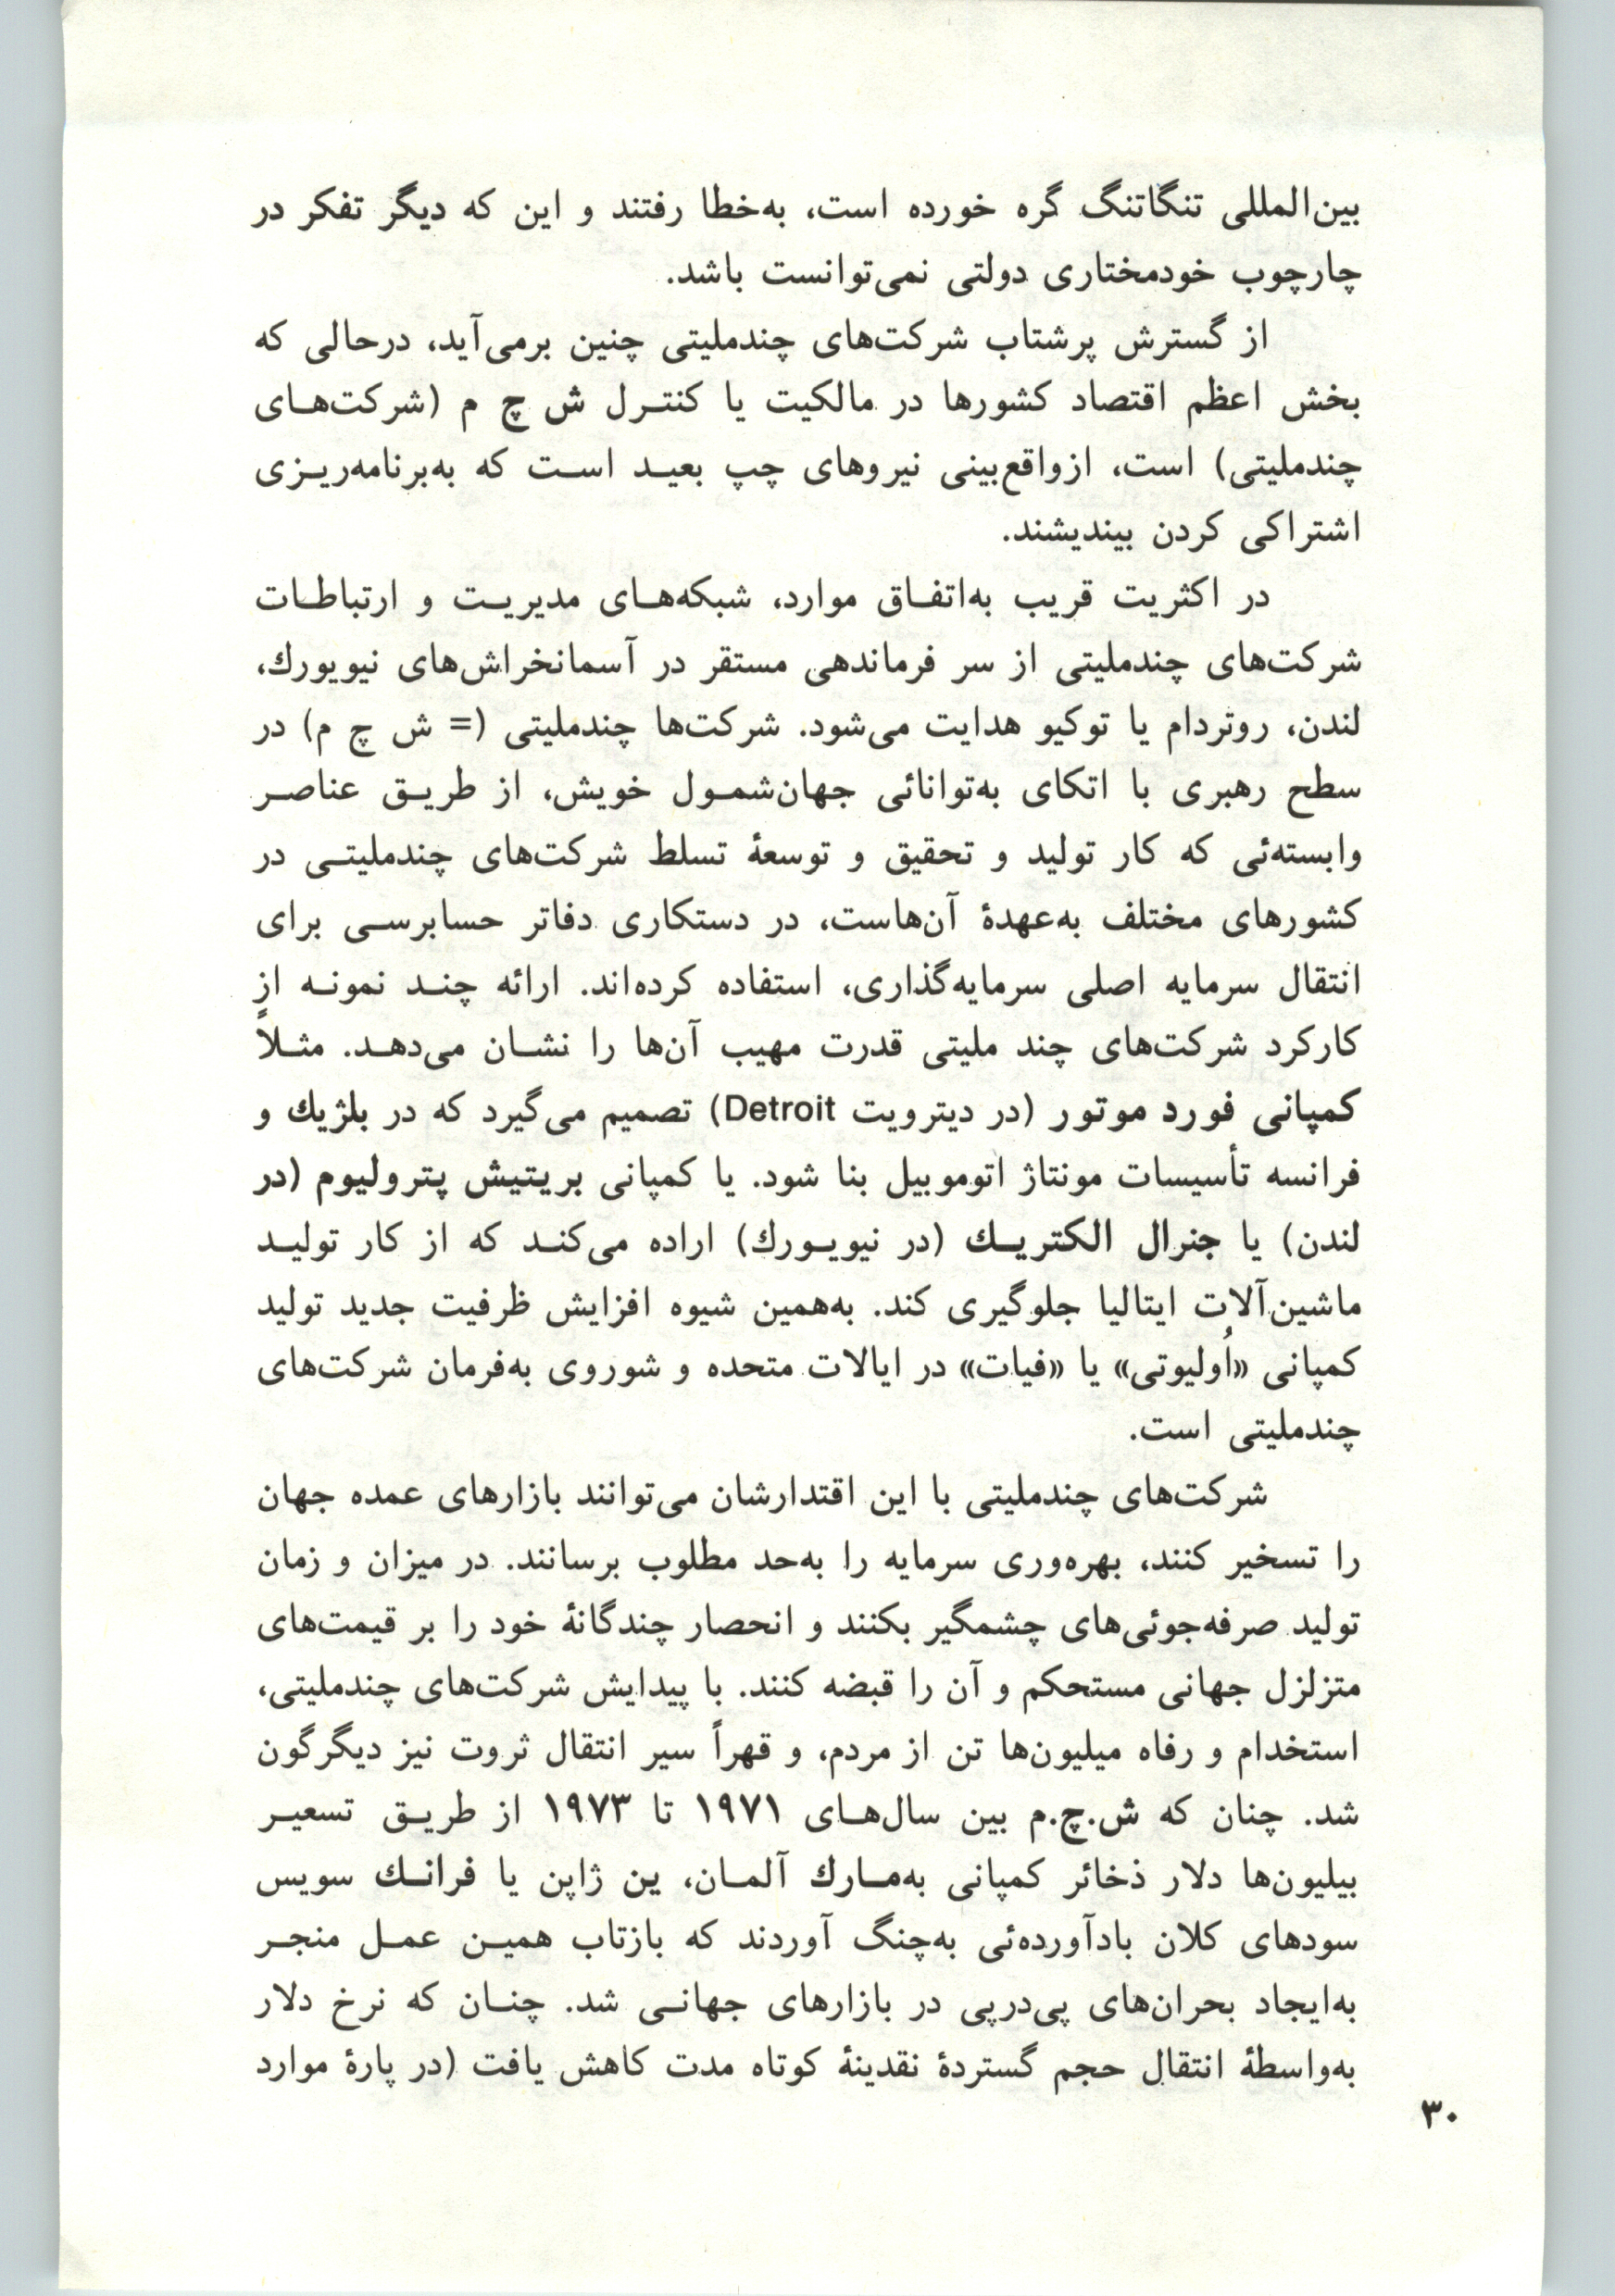 بین‌المللی تنگاتنگ گره خورده است، به‌خطا رفتند و این که دیگر تفکر در
چارچوب خودمختاری دولتی نمی‌توانست باشد.
از گسترش پرشتاب شرکت‌های چندملیتی چنین برمی‌آید، درحالی که
بخش اعظم اقتصاد کشورها در مالکیت یا کنترل ش چ م (شرکت‌های
چندملیتی) است، ازواقع‌بینی نیروهای چپ بعید است که به‌برنامه‌ریزی
اشتراکی کردن بیندیشند.
در اکثریت قریب به‌اتفاق موارد، شبکه‌های مدیریت و ارتباطات
شرکت‌های چندملیتی از سر فرماندهی مستقر در آسمانخراش‌های نیویورك،
لندن، روتردام یا توکیو هدایت می‌شود. شرکت‌ها چندملیتی (= ش چ م) در
سطح رهبری با اتکای به‌توانائی جهان‌شمول خویش، از طریق عناصر
وابسته‌ئی که کار تولید و تحقیق و توسعهٔ تسلط شرکت‌های چندملیتی در
کشورهای مختلف به‌عهدهٔ آن‌هاست، در دستکاری دفاتر حسابرسی برای
انتقال سرمایه اصلی سرمایه‌گذاری، استفاده کرده‌اند. ارائه چند نمونه از
کارکرد شرکت‌های چند ملیتی قدرت مهیب آن‌ها را نشان می‌دهد. مثلاً
کمپانی فورد موتور (در دیترویت Detroit) تصمیم می‌گیرد که در بلژیك و
فرانسه تأسیسات مونتاژ اتوموبیل بنا شود. یا کمپانی بریتیش پترولیوم (در
لندن) یا جنرال الکتریك (در نیویورك) اراده می‌کند که از کار تولید
ماشین‌آلات ایتالیا جلوگیری کند. به‌همین شیوه افزایش ظرفیت جدید تولید
کمپانی «اُولیوتی» یا «فیات» در ایالات متحده و شوروی به‌فرمان شرکت‌های
چندملیتی است.
شرکت‌های چندملیتی با این اقتدارشان می‌توانند بازارهای عمده جهان
را تسخیر کنند، بهره‌وری سرمایه را به‌حد مطلوب برسانند. در میزان و زمان
تولید صرفه‌جوئی‌های چشمگیر بکنند و انحصار چندگانهٔ خود را بر قیمت‌های
متزلزل جهانی مستحکم و آن را قبضه کنند. با پیدایش شرکت‌های چندملیتی،
استخدام و رفاه میلیون‌ها تن از مردم، و قهراً سیر انتقال ثروت نیز دیگرگون
شد. چنان که ش.چ.م بین سال‌های ۱۹۷۱ تا ۱۹۷۳ از طریق تسعیر
بیلیون‌ها دلار ذخائر کمپانی به‌مارك آلمان، ین ژاپن یا فرانك سویس
سودهای کلان بادآورده‌ئی به‌چنگ آوردند که بازتاب همین عمل منجر
به‌ایجاد بحران‌های پی‌درپی در بازارهای جهانی شد. چنان که نرخ دلار
به‌واسطهٔ انتقال حجم گستردهٔ نقدینهٔ کوتاه مدت کاهش یافت (در پارهٔ موارد
۳۰